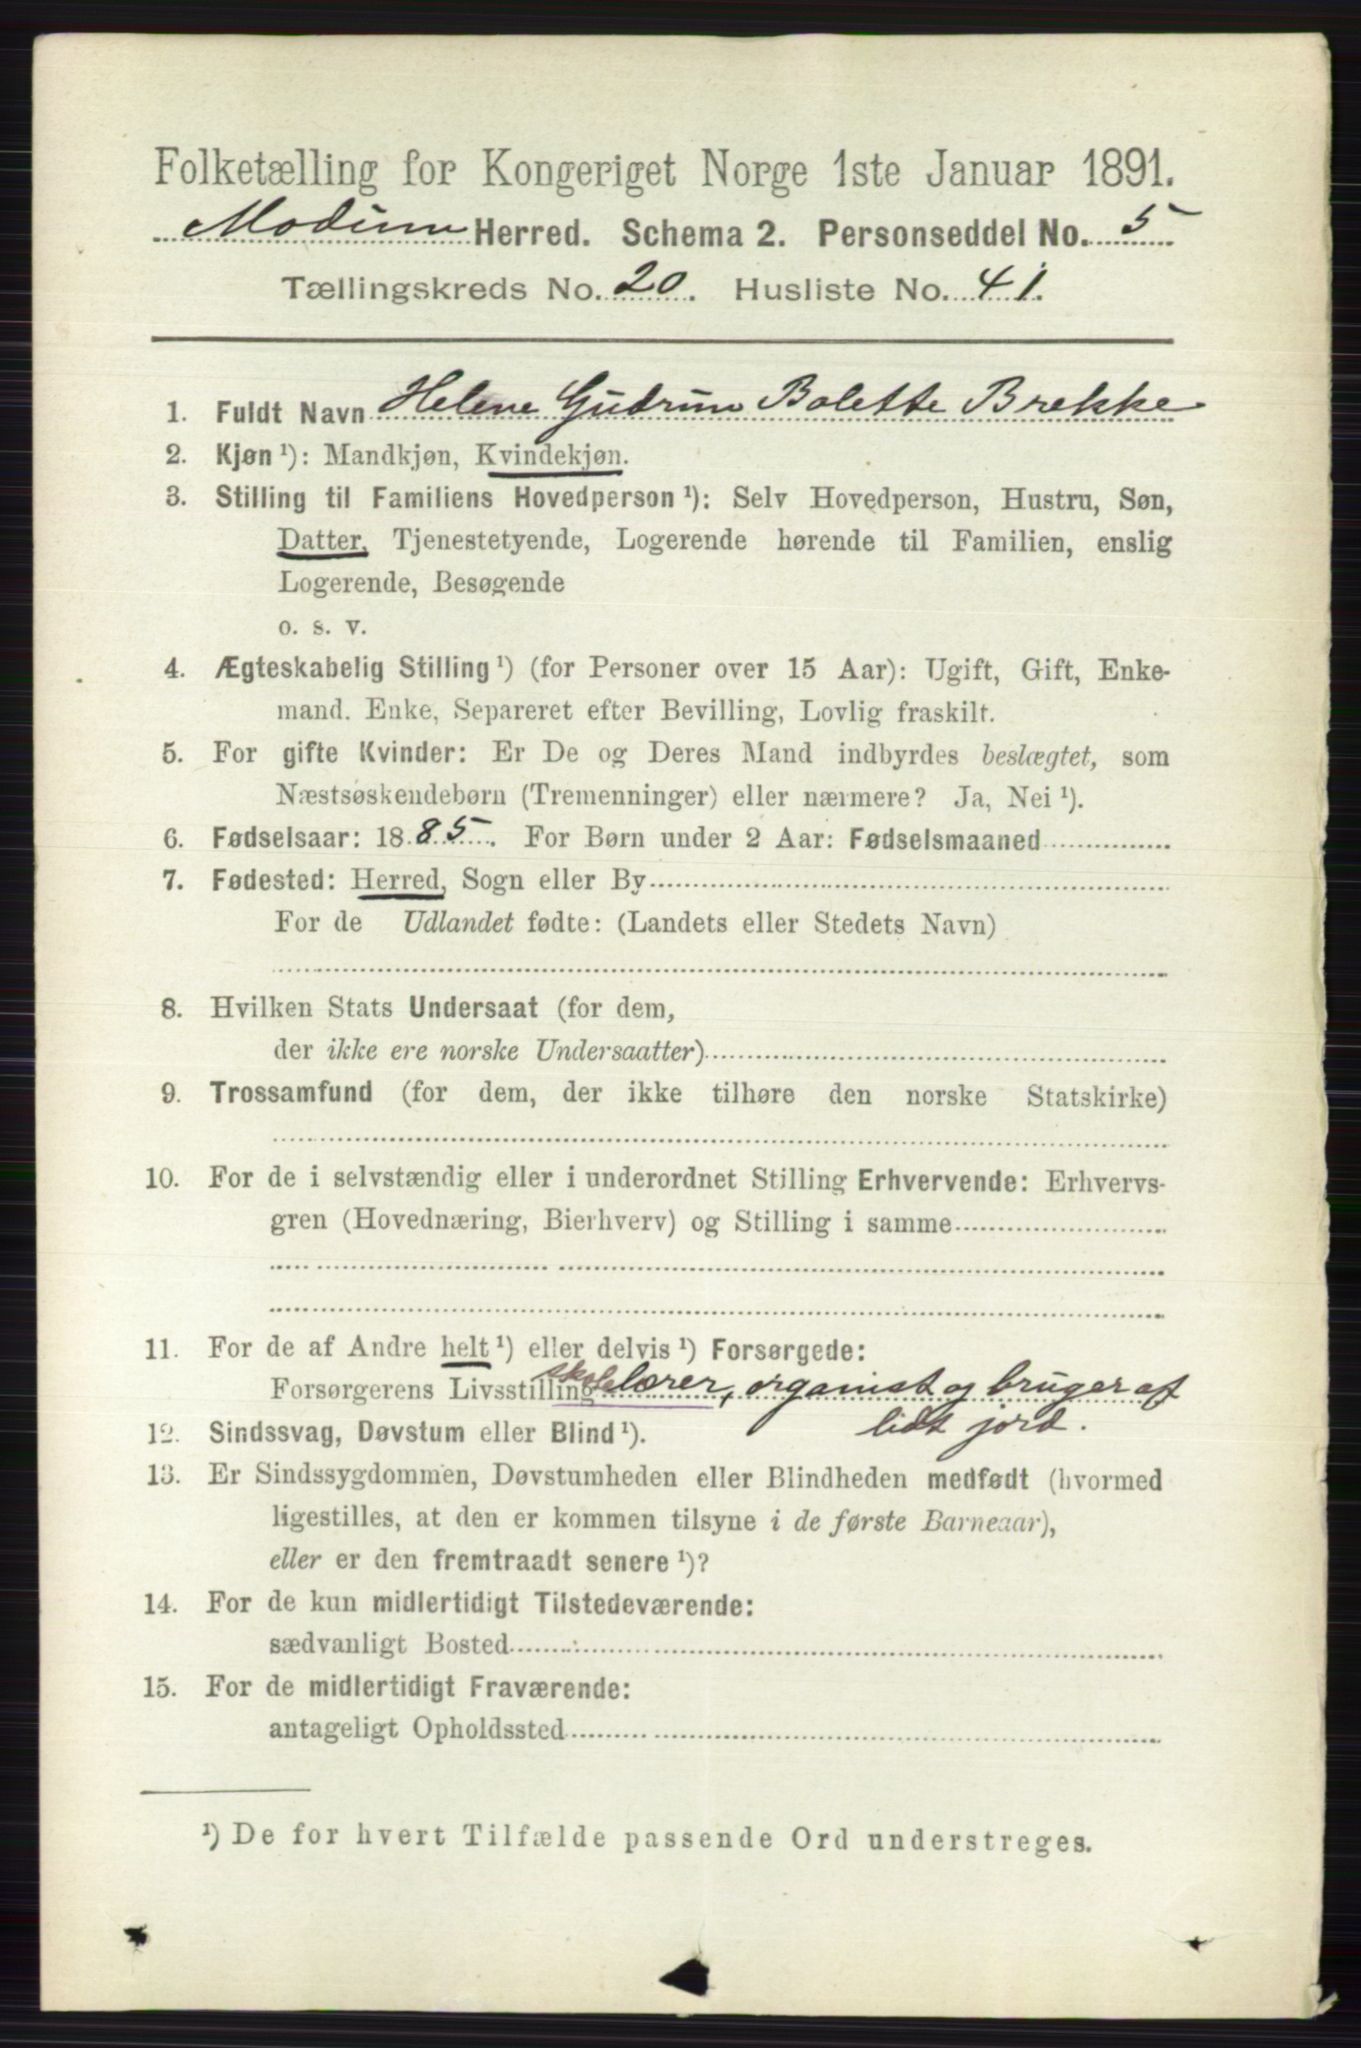 Folketælling for Kongeriget Norge 1ste Januar 1891.
Modum Herred. Schema 2. Personseddel No. 5
Tællingskreds No. 20. Husliste No. 41.
1. Fuldt Navn Helene Gudrun Bolette Brekke
2. Kjøn ¹): Mandkjøn, Kvindekjøn.
3. Stilling til Familiens Hovedperson ¹): Selv Hovedperson, Hustru, Søn,
Datter, Tjenestetyende, Logerende hørende til Familien, enslig
Logerende, Besøgende
o. s. v.
4. Ægteskabelig Stilling ¹) (for Personer over 15 Aar): Ugift, Gift, Enke-
mand. Enke, Separeret efter Bevilling, Lovlig fraskilt.
5. For gifte Kvinder: Er De og Deres Mand indbyrdes beslægtet, som
Næstsøskendebørn (Tremenninger) eller nærmere? Ja, Nei ¹).
6. Fødselsaar: 1885. For Børn under 2 Aar: Fødselsmaaned
7. Fødested: Herred, Sogn eller By
For de Udlandet fødte: (Landets eller Stedets Navn)
8. Hvilken Stats Undersaat (for dem,
der ikke ere norske Undersaatter)
9. Trossamfund (for dem, der ikke tilhøre den norske Statskirke)
10. For de i selvstændig eller i underordnet Stilling Erhvervende: Erhvervs-
gren (Hovednæring, Bierhverv) og Stilling i samme
11. For de af Andre helt ¹) eller delvis ¹) Forsørgede:
Forsørgerens Livsstilling skolelærer, organist og bruger af
lidt jord.
12. Sindssvag, Døvstum eller Blind ¹).
13. Er Sindssygdommen, Døvstumheden eller Blindheden medfødt (hvormed
ligestilles, at den er kommen tilsyne i de første Barneaar),
eller er den fremtraadt senere ¹)?
14. For de kun midlertidigt Tilstedeværende:
sædvanligt Bosted
15. For de midlertidigt Fraværende:
antageligt Opholdssted
¹) De for hvert Tilfælde passende Ord understreges.